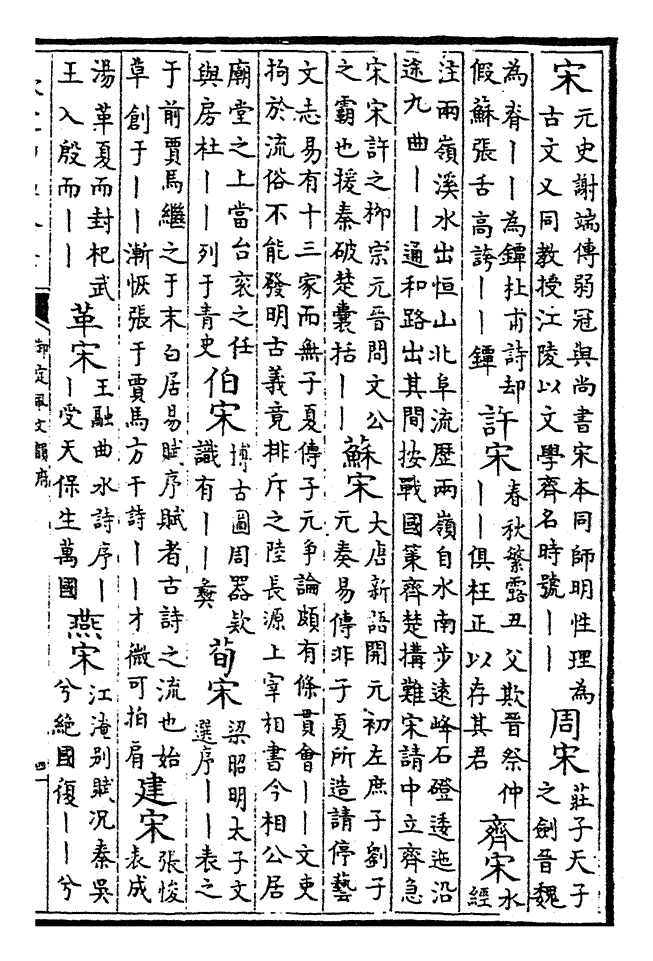 宋
元史謝端傳弱冠與尚書宋本同師明性理為
古文又同教授江陵以文學齊名時號丨丨
周宋
莊子天子
之劍晉魏
為脊丨丨為鐔杜甫詩却
假蘇張舌高誇丨丨鐔
許宋
春秋繁露丑父欺晉祭仲
丨丨俱枉正以存其君
齊宋
水
經
注兩嶺溪水出恒山北阜流歷兩嶺自水南步遠峰石磴逶迤沿
途九曲丨丨通和路出其間按戰國策齊楚搆難宋請中立齊急
宋宋許之柳宗元晉問文公
之霸也援秦破楚囊括丨丨
蘇宋
大唐新語開元初左庶子劉子
元奏易傳非子夏所造請停藝
文志易有十三家而無子夏傳子元爭論頗有條貫會丨丨文吏
拘於流俗不能發明古義竟排斥之陸長源上宰相書今相公居
廟堂之上當台衮之任
與房杜丨丨列于青史
伯宋
博古圖周器欵
識有丨丨彝
荀宋
梁昭明太子文
選序丨丨表之
于前賈馬繼之于末白居易賦序賦者古詩之流也始
草創于丨丨漸恢張于賈馬方干詩丨丨才微可拍肩
建宋
張悛
表成
湯革夏而封杞武
王入殷而丨丨
革宋
王融曲水詩序丨
丨受天保生萬國
燕宋
江淹别賦况秦吳
兮絶國復丨丨兮
御定佩文韻府